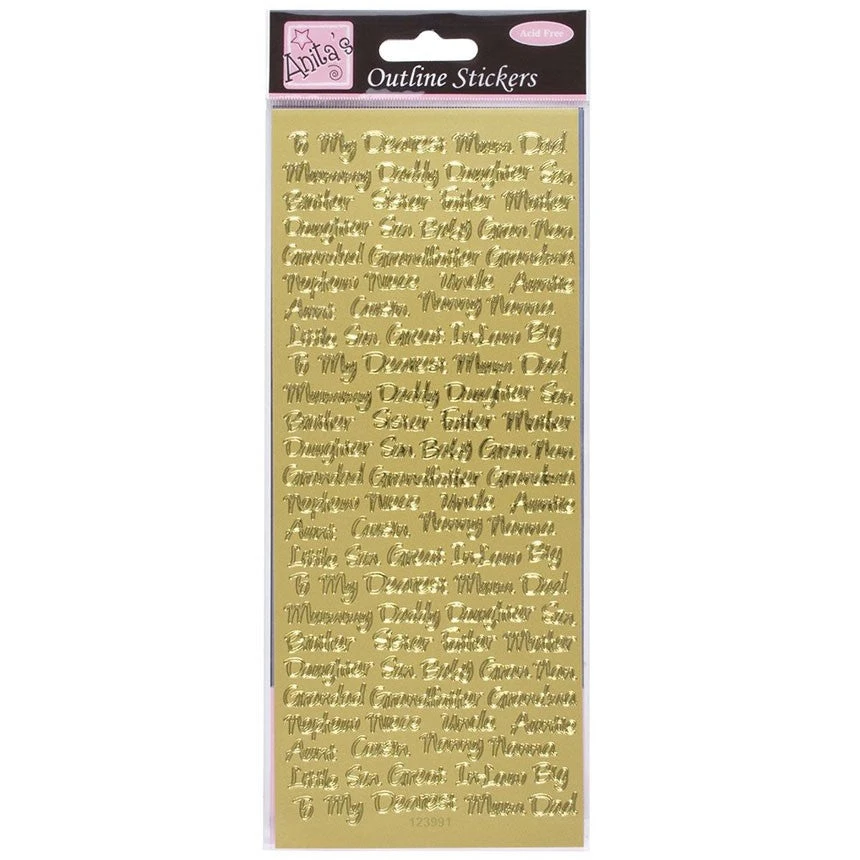 Anita's
Outline Stickers
Acid Free
To My Dearest Mum Dad
Mummy Daddy Daughter Son
Brother Sister Father Mother
Daughter Son Baby Gran Nan
Grandad Grandfather Grandson
Nephew Niece Uncle Auntie
Aunt Cousin Nanny Nanna
Little Son Great In Law Big
To My Dearest Mum Dad
Mummy Daddy Daughter Son
Brother Sister Father Mother
Daughter Son Baby Gran Nan
Grandad Grandfather Grandson
Nephew Niece Uncle Auntie
Aunt Cousin Nanny Nanna
Little Son Great In Law Big
To My Dearest Mum Dad
Mummy Daddy Daughter Son
Brother Sister Father Mother
Daughter Son Baby Gran Nan
Grandad Grandfather Grandson
Nephew Niece Uncle Auntie
Aunt Cousin Nanny Nanna
Little Son Great In Law Big
To My Dearest Mum Dad
123991